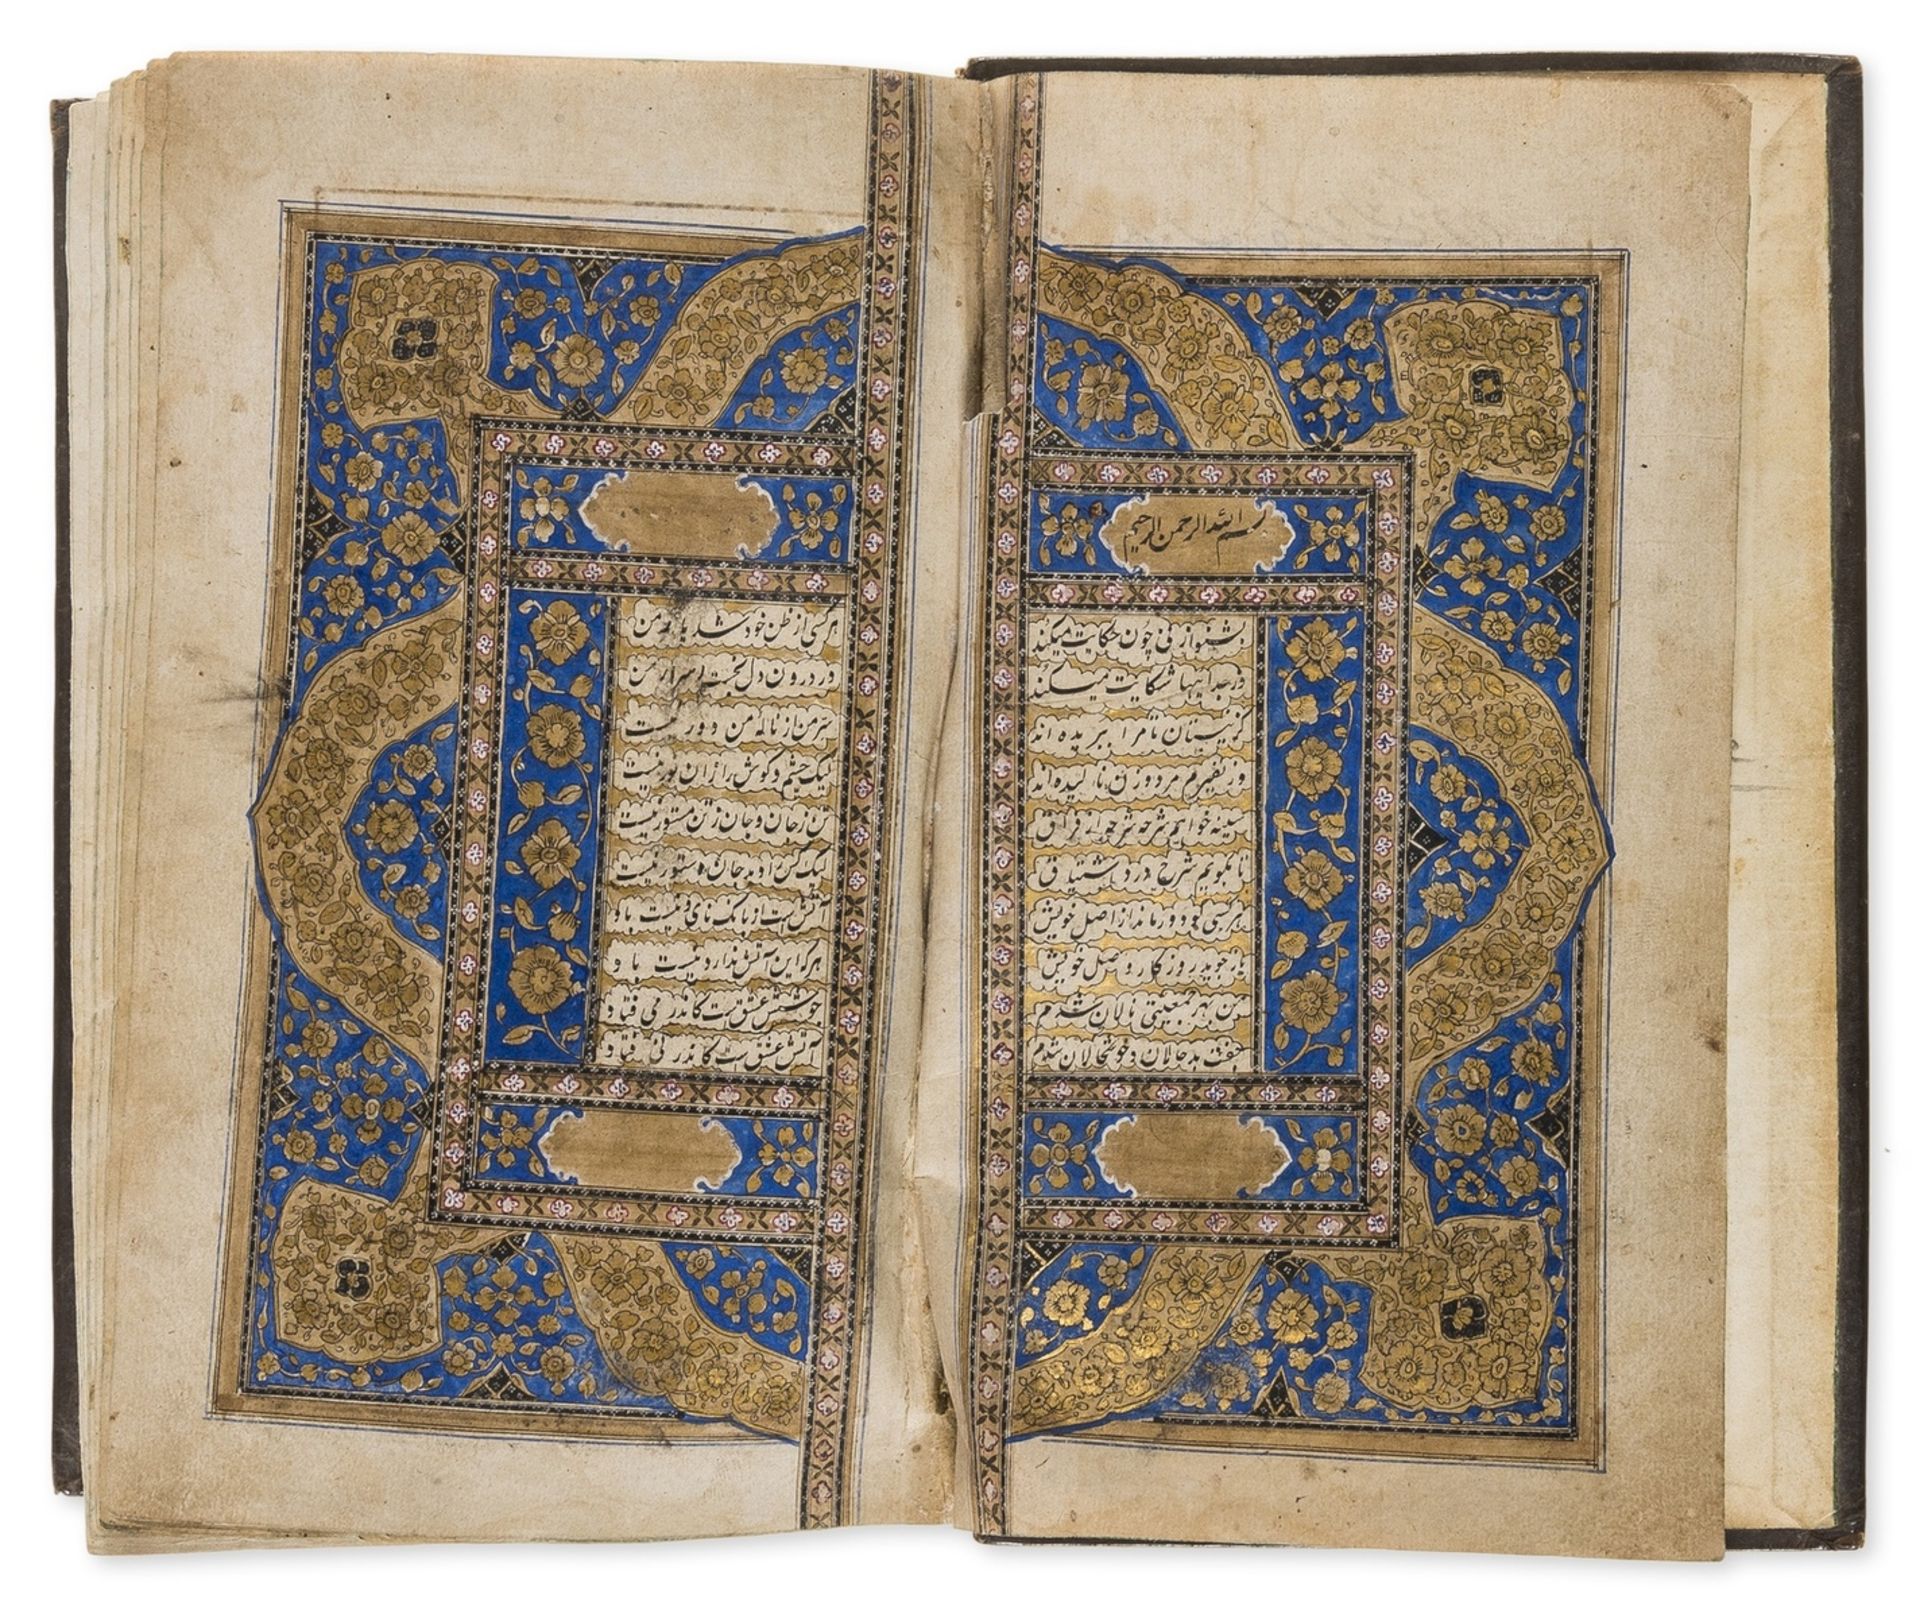 بسم الله الرحمن الرحیم
بشنو از نی چون حکایت میکند
وز جداییها شکایت میکند
کز نیستان تا مرا ببریده اند
وز نفیرم مرد و زن نالیده اند
سینه خواهم شرحه شرحه از فراق
تا بگویم شرح درد اشتیاق
هر کسی کو دور ماند از اصل خویش
باز جوید روزگار وصل خویش
من بهر جمعیتی نالان شدم
جفت بدحالان و خوشحالان شدم
هر کسی از ظن خود شد یار من
ور درون دل نجست اسرار من
سر من از ناله من دور نیست
لیک چشم و گوش را آن نور نیست
تن ز جان و جان ز تن مستور نیست
لیک کس را دید جان دستور نیست
آتش است از بانک نای و نیست باد
هر که این آتش ندارد نیست باد
جوشش عشق است کاندر می فتاد
آتش عشق است کاندر نی فتاد